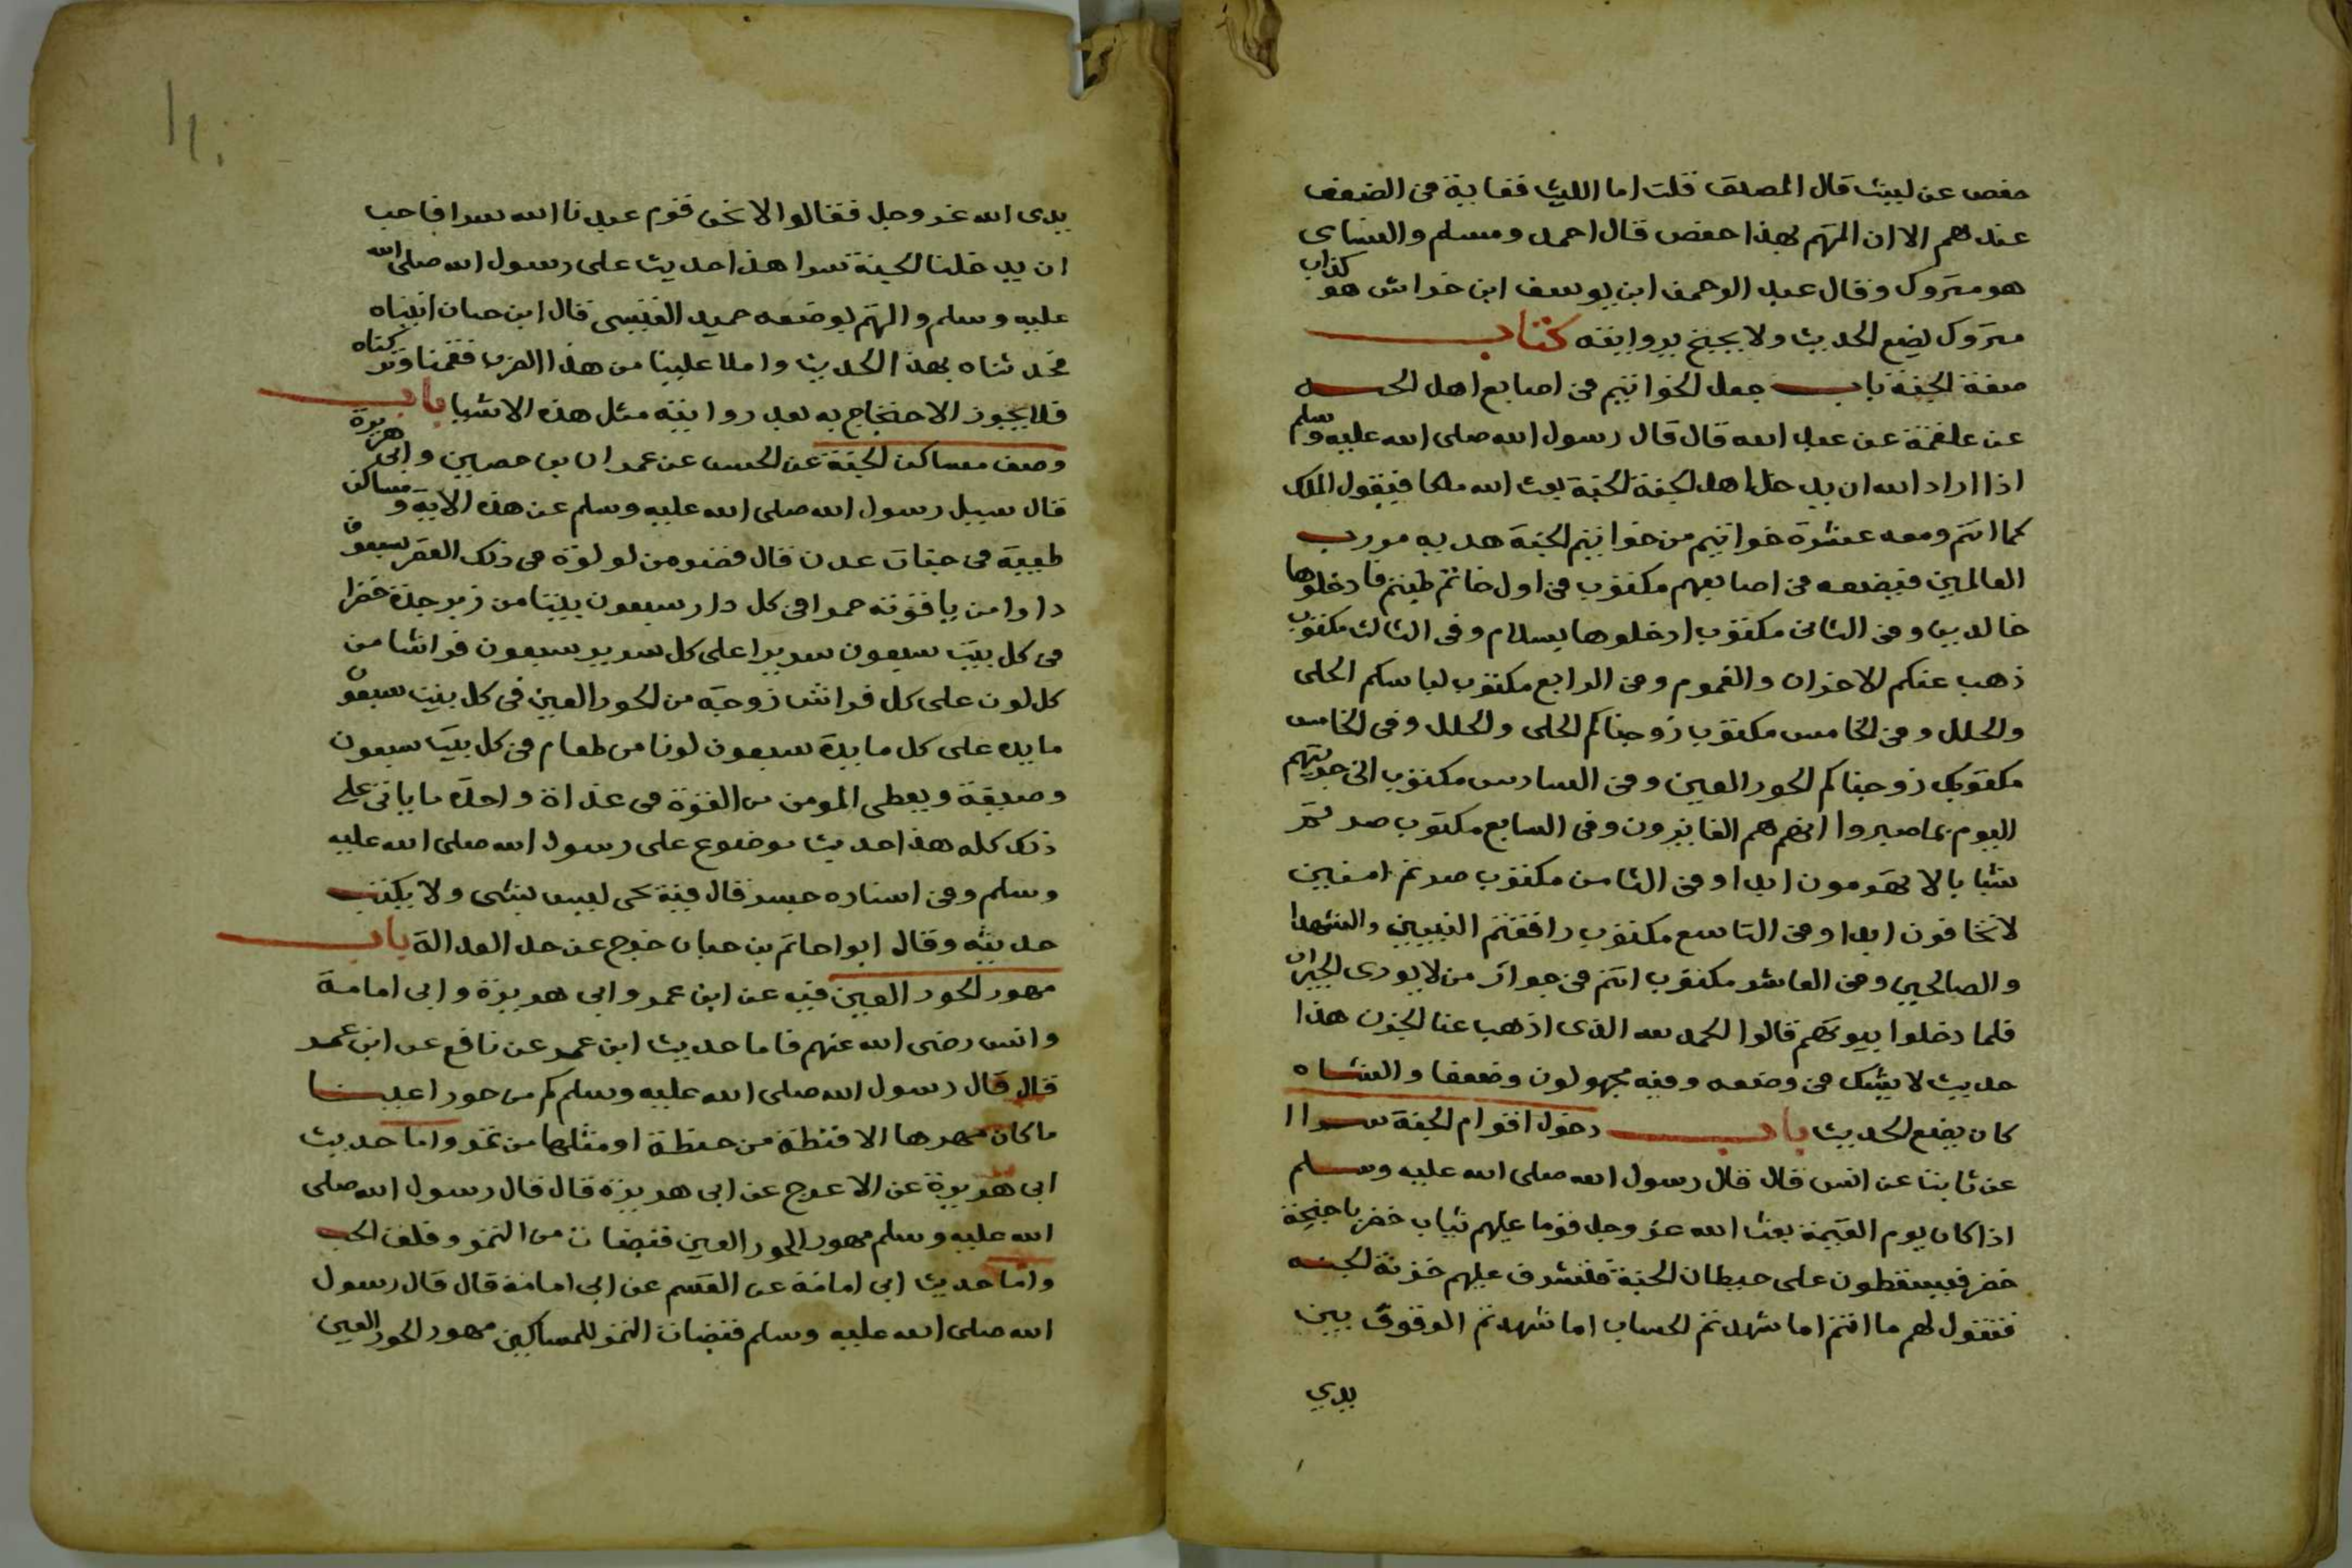 حفص عن ليث قال المصنف قلت اما الليث فغاية في الضعف
عندهم الا ان المتهم بهذا حفص قال احمد ومسلم والنساى
هو متروك وقال عبد الرحمن ابن يوسف ابن خراش هو كذاب
متروك يضع الحديث ولا يحتج بروايته كتاب
صفة الجنة باب جعل الخواتيم في اصابع اهل الجنة
عن علقمة عن عبد الله قال قال رسول الله صلى الله عليه وسلم
اذا اراد الله ان يدخل اهل الجنة الجنة بعث الله ملكا فيقول الملك
كما انتم ومعه عشرة خواتيم من خواتيم الجنة هديه من رب
العالمين فيضعه في اصابعهم مكتوب في اول خاتم طبتم فادخلوها
خالدين وفي الثاني مكتوب ادخلوها بسلام وفي الثالث مكتوب
ذهب عنكم الاحزان والغموم وفي الرابع مكتوب لباسكم الحلى
والحلل وفي الخامس مكتوب زوجناكم الحلى والحلل وفي الخامس
مكتوب زوجناكم الحور العين وفي السادس مكتوب اني جزيتهم
اليوم بما صبروا انهم هم الفايزون وفي السابع مكتوب صرتم
شبابا لا تهرمون ابدا وفي الثامن مكتوب صرتم امنين
لا تخافون ابدا وفي التاسع مكتوب رافقتم النبيين والشهدا
والصالحين وفي العاشر مكتوب انتم في جوار من لا يوذى الجيران
فلما دخلوا بيوتهم قالوا الحمد لله الذى اذهب عنا الحزن هذا
حديث لا يشك في وضعه وفيه مجهولون وضعفا والشاه
كان يضع الحديث باب دخول اقوام الجنة سرا ا
عن ثابت عن انس قال قال رسول الله صلى الله عليه وسلم
اذا كان يوم القيمة بعث الله عز وجل قوما عليهم ثياب خضر باجنحة
خضر فيسقطون على حيطان الجنة فتشرف عليهم خزنة الجنه
فتقول لهم ما انتم اما شهدتم الحساب اما شهدتم الوقوف بين
يدي
يدى الله عز وجل فقالوا لا نحن قوم عبدنا الله سرا فاحب
ان يدخلنا الجنة سرا هذا حديث على رسول الله صلى الله
عليه وسلم والمتهم بوضعه حميد القيسى قال ابن حبان اتيناه
فحدثناه بهذا الحديث واملا علينا من هذا الضرب فقمنا وتركناه
فلا يجوز الاحتجاج به بعد روايته مثل هذه الاشيا باب
وصف مساكن الجنة عن الحسن عن عمران بن حصين وابى هريرة
قال سيل رسول الله صلى الله عليه وسلم عن هذه الاية ومساكن
طيبة في جنات عدن قال قصر من لولوة في ذلك القصر سبعون
دارا من ياقوته حمرا في كل دار سبعون بيتا من زبرجدة خضرا
في كل بيت سبعون سريرا على كل سرير سبعون فراشا من
كل لون على كل فراش زوجة من الحور العين في كل بيت سبعون
مايده على كل مايدة سبعون لونا من طعام في كل بيت سبعون
وصيفة ويعطى المومن من القوة في غداة واحدة ما ياتي على
ذلك كله هذا حديث موضوع على رسول الله صلى الله عليه
وسلم وفي اسناده جسر قال فيه يحى ليس بشى ولا يكتب
حديثه وقال ابو احاتم بن حبان خرج عن حد العدالة باب
مهور الحور العين فيه عن ابن عمر وابي هريرة وابى امامة
وانس رضى الله عنهم فاما حديث ابن عمر عن نافع عن ابن عمر
قال قال رسول الله صلى الله عليه وسلم كم من حورا عينا
ما كان مهرها الا قبضة من حنطة او مثلها من تمر واما حديث
ابى هريرة عن الاعرج عن ابى هريرة قال قال رسول الله صلى
الله عليه وسلم مهور الحور العين قبضات من التمر وفلق الخبز
واما حديث ابى امامة عن القسم عن ابى امامة قال قال رسول
الله صلى الله عليه وسلم قبضات التمر للمساكين مهور الحور العين